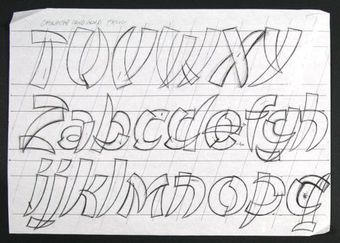 TUVWXY
Zabccdefgh
ijklmnopq